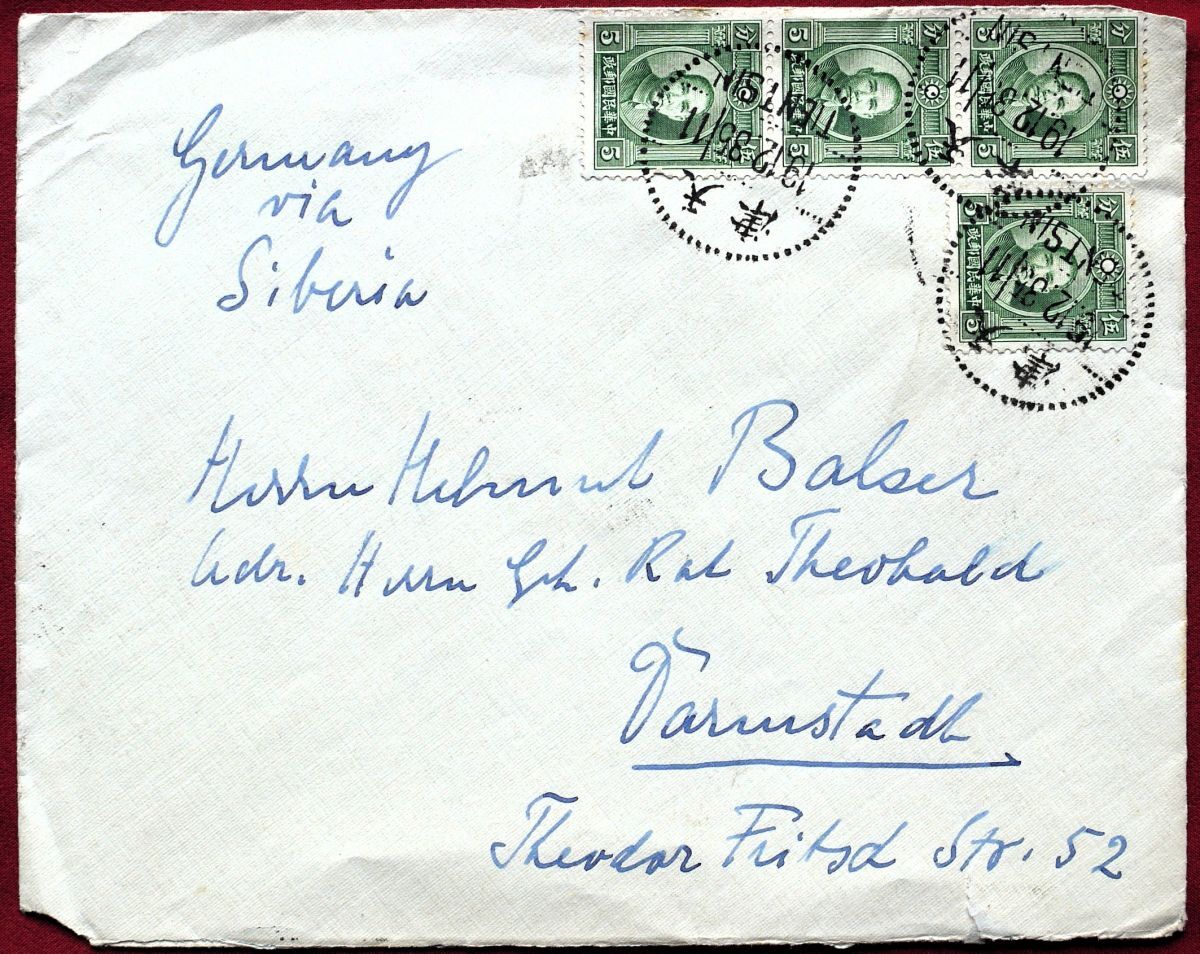 5 分
中華民國郵政
5 伍
5 分
中華民國郵政
5 伍
5 分
中華民國郵政
5 伍
TIENTSIN
19.12.35/11
天津
TIENTSIN
19.12.3 /11
天
5 分
中華民國郵政
5 伍
NTSIN
天津
Germany
via
Siberia
Herrn Helmut Balser
Adr. Herrn Geh. Rat Theobald
Darmstadt
Theodor Fritsch Str. 52